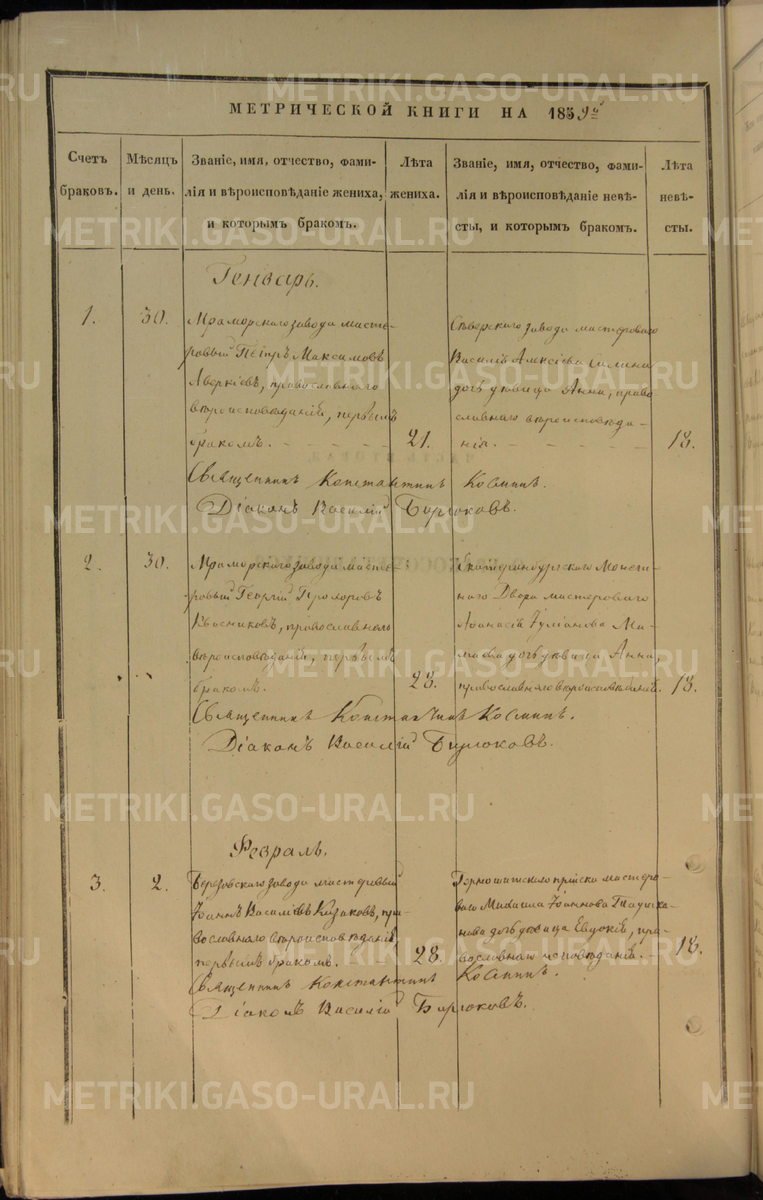 МЕТРИЧЕСКОЙ КНИГИ НА 1859 й
Счетъ браковъ.
Мѣсяцъ и день.
Званіе, имя, отчество, фами-
лія и вѣроисповѣданіе жениха,
и которымъ бракомъ.
Лѣта жениха.
Званіе, имя, отчество, фами-
лія и вѣроисповѣданіе невѣ-
сты, и которымъ бракомъ.
Лѣта невѣ-
сты.
Генварь.
1.
30.
Мраморскаго завода масте-
ровый Петръ Максимовъ
Аверкіевъ, православнаго
вѣроисповѣданія, первымъ
бракомъ.
21.
Сѣверскаго завода мастероваго
Василія Алексѣева
дочь дѣвица Анна, право-
славнаго вѣроисповѣда-
нія.
18.
Священникъ Константинъ Косминъ.
Діаконъ Василій Бирюковъ.
2.
30.
Мраморскаго завода масте-
ровый Георгій Прохоровъ
Квасниковъ, православнаго
вѣроисповѣданія, первымъ
бракомъ.
23.
Екатеринбургскаго Монет-
наго Двора мастероваго
Аѳанасія
дочь дѣвица Анна,
православнаго вѣроисповѣданія.
18.
Священникъ Константинъ Косминъ.
Діаконъ Василій Бирюковъ.
Февраль.
3.
2.
Березовскаго завода мастеровый
Іоаннъ Василіевъ Казаковъ, пра-
вославнаго вѣроисповѣданія,
первымъ бракомъ.
28.
Горнощитскаго пріиска мастеро-
ваго Михаила Іоаннова
дочь дѣвица Евдокія, пра-
вославнаго исповѣданія.
18.
Священникъ Константинъ Косминъ.
Діаконъ Василій Бирюковъ.
METRIKI.GASO-URAL.RU